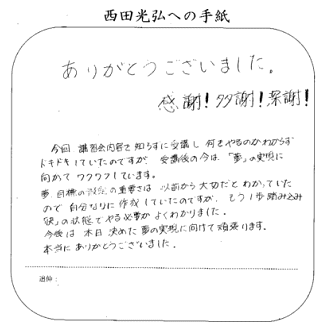 西田光弘への手紙
ありがとうございました。
感謝！多謝！深謝！
今回 講習会内容を知らずに受講し 何をやるのかわからず
ドキドキしていたのですが、受講後の今は「夢」の実現に
向かって ワクワクしています。
夢、目標の設定の重要さは 以前から大切だとわかっていた
ので 自分なりに作成していたのですが、もう1歩踏み込み
「快」の状態でやる必要が よくわかりました。
今後は 本日 決めた 夢の実現に向けて頑張ります。
本当に ありがとうございました。
追伸：